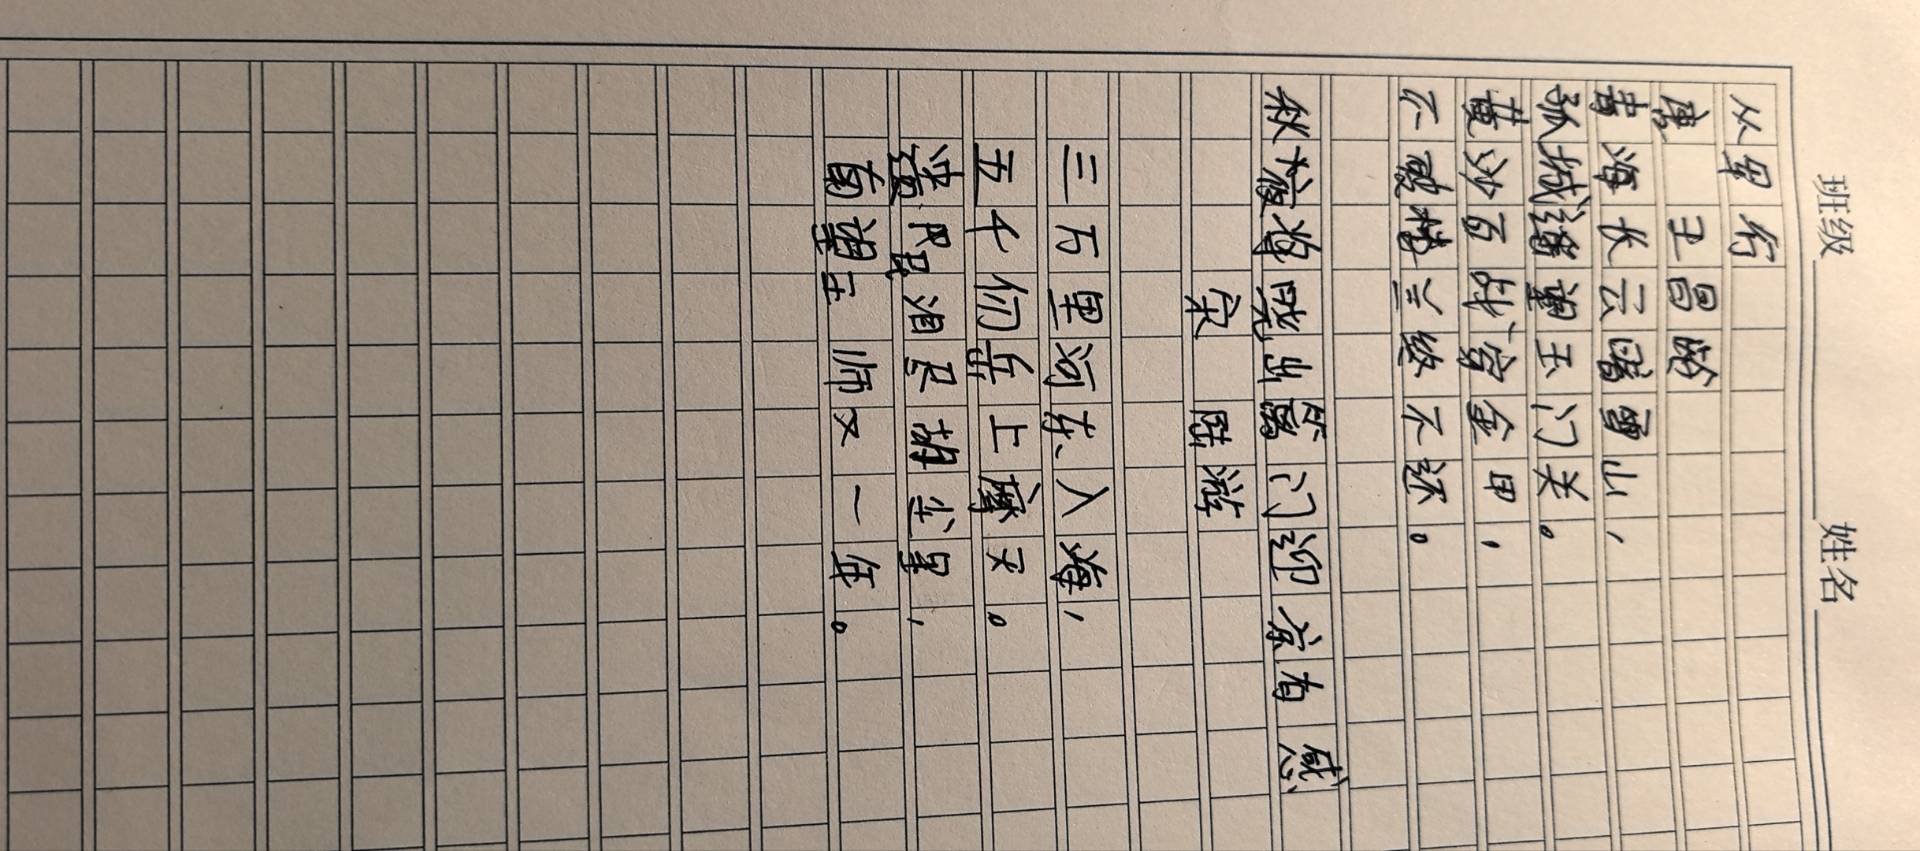 班级 姓名
从军行
唐 王昌龄
青海长云暗雪山，
孤城遥望玉门关。
黄沙百战穿金甲，
不破楼兰终不还。
秋夜将晓出篱门迎凉有感
宋 陆游
三万里河东入海，
五千仞岳上摩天。
遗民泪尽胡尘里，
南望王师又一年。